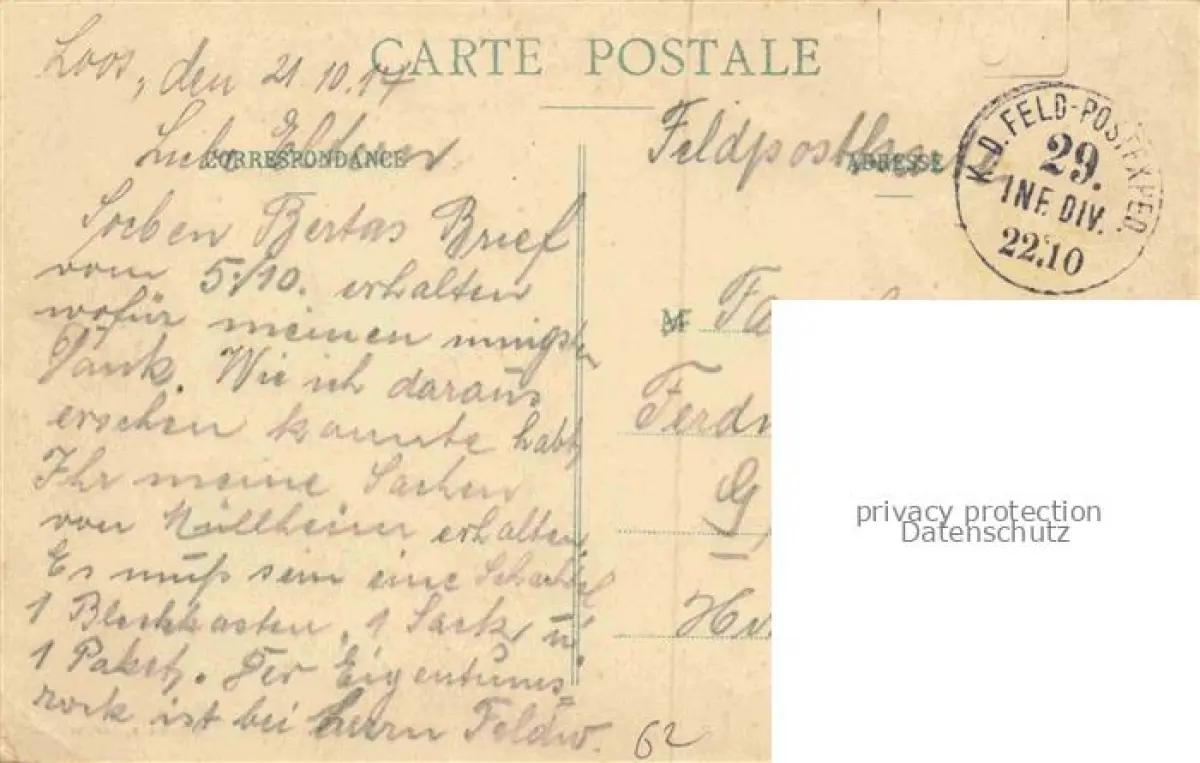 CARTE POSTALE
Loos, den 21.10.14
Liebe Eltern
CORRESPONDANCE
Soeben Bertas Brief
vom 5./10. erhalten
wofür meinen innigsten
Dank. Wie ich daraus
ersehen konnte habt
Ihr meine Sachen
von Müllheim erhalten
Es muß sein eine Schachtel
1 Blechkasten, 1 Sack, u.
1 Paket. Der Eigentums=
rock ist bei Herrn Feldw.
Feldpostkarte
ADRESSE
K.D. FELD-POSTEXPED.
29.
INF. DIV.
22.10
M
Fa
Ferdi
G
H
62
privacy protection
Datenschutz